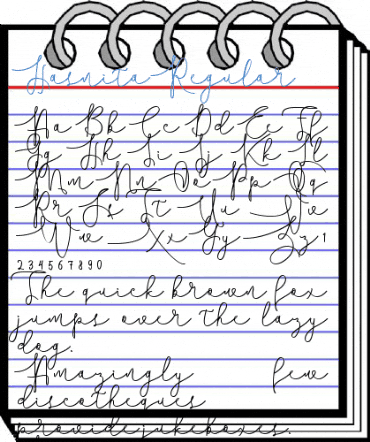 Hasnita Regular
Aa Bb Cc Dd Ee Ff
Gg Hh Ii Jj Kk Ll
Mm Nn Oo Pp Qq
Rr Ss Tt Uu Vv
Ww Xx Yy Zz 1
2 3 4 5 6 7 8 9 0
The quick brown fox
jumps over the lazy
dog.
Amazingly few
discotheques
provide jukeboxes.